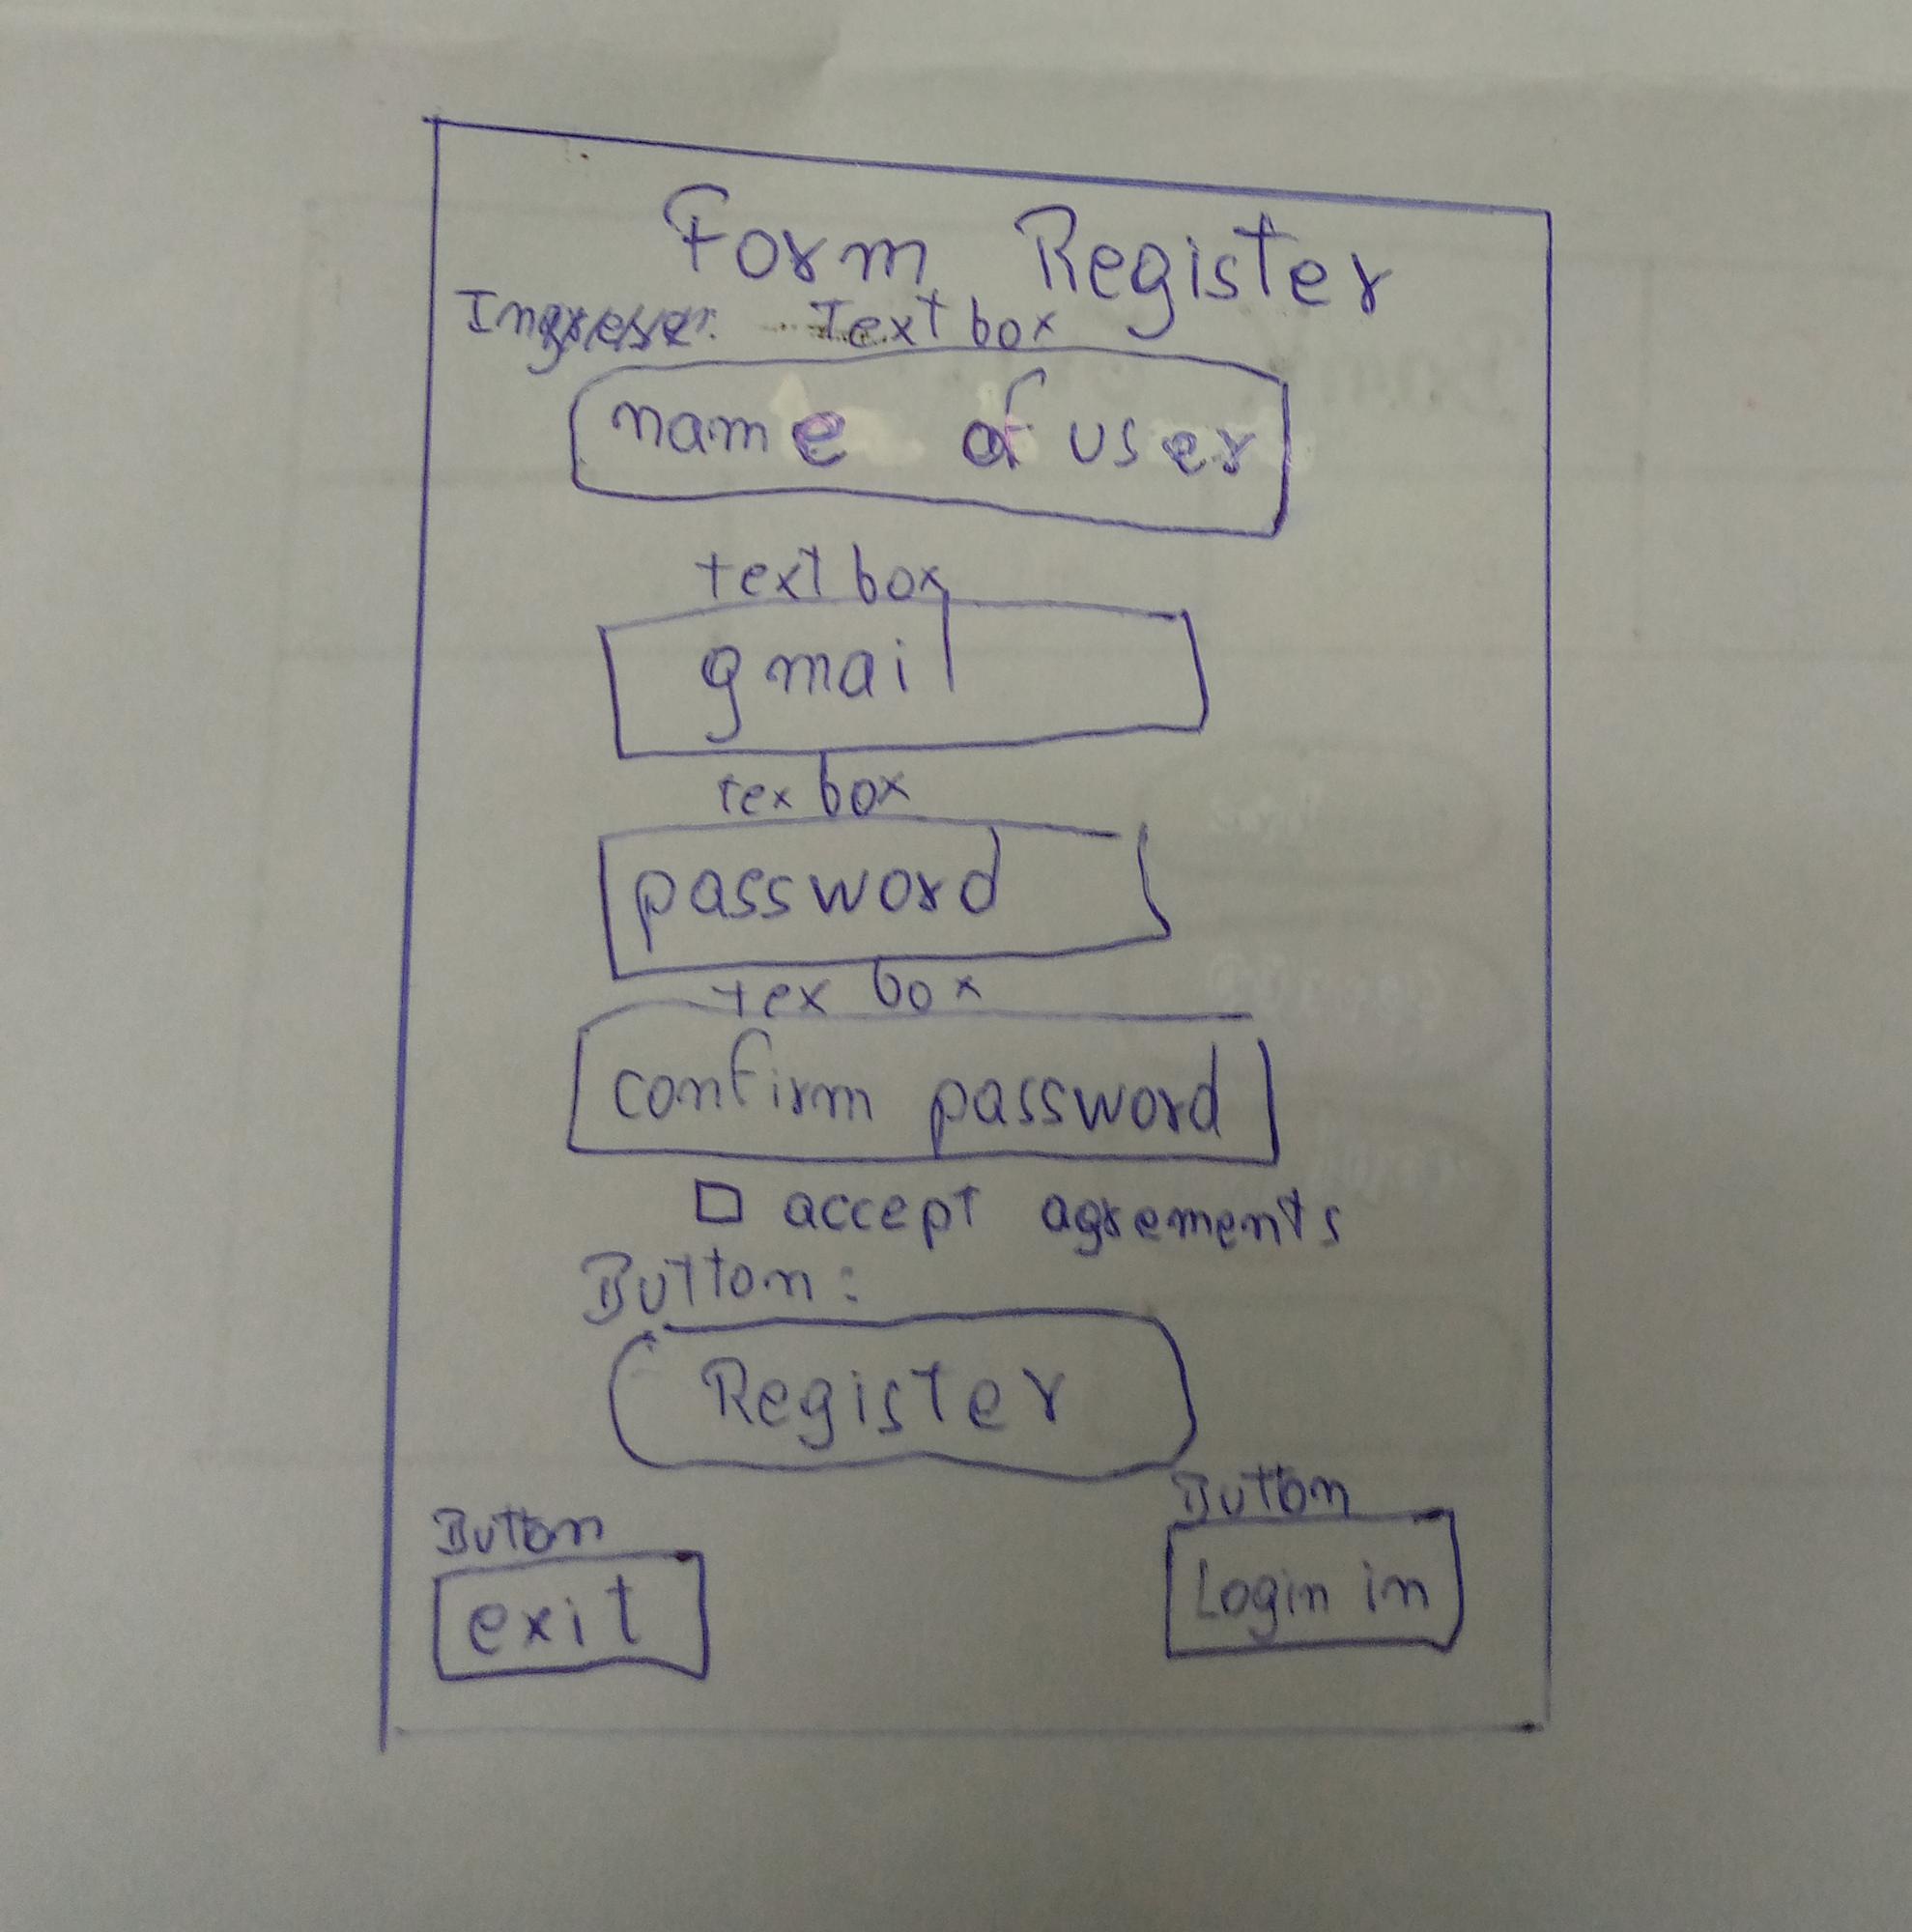 Form Register
Ingrese: Text box
name of user
text box
gmail
tex box
password
tex box
confirm password
accept agrements
Buttom:
Register
Button
Button
exit
Login in